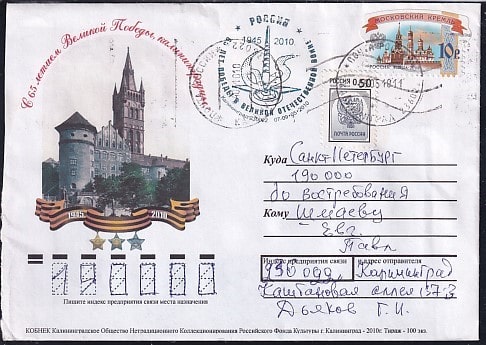 С 65-летием Великой Победы, калининградцы!
РОССИЯ
1945 2010
65 ЛЕТ ПОБЕДЫ В ВЕЛИКОЙ ОТЕЧЕСТВЕННОЙ ВОЙНЕ
07-09-05-2010
МОСКОВСКИЙ КРЕМЛЬ
10
РОССИЯ 0.50
ПОЧТА РОССИИ
1945 2010
Куда Санкт-Петербург
190 000
до востребования
Кому Шмаеву
Евг.
Павл
Индекс предприятия связи и адрес отправителя
Калининград
Каштановая аллея 137-3
Дьяков Г. И.
190000
Пишите индекс предприятия связи места назначения
КОБНЕК Калининградское Общество Нетрадиционного Коллекционирования Российского Фонда Культуры г. Калининград - 2010г. Тираж - 100 экз.